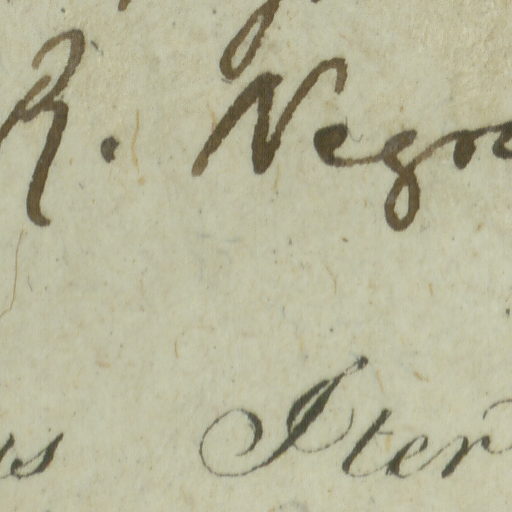 R. Negro
us Iter